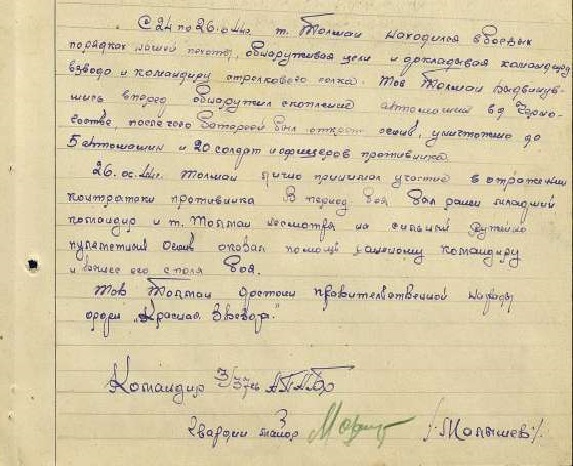 С 24 по 26.о.44г. т. Толмач находилья в боевых
порядках нашей пехоты, обнаруживая цели и докладывая командиру
взвода и командиру стрелкового полка. Тов Толмач выдвинув-
шись вперед обнаружил скопление автомашин в д
после чего батареей был открыт огонь, уничтожено до
5 автомашин и 20 солдат и офицеров противника.
26. 44г. Толмач лично принимал участие в отражении
контратаки противника В период боя был ранен младший
командир и т. Толмач несмотря на сильный ружейно
пулеметный огонь оказал помощь раненому командиру
и вынес его с поля боя.
Тов Толмач достоин правительственной награды
орден "Красная Звезда".
Командир 3/37й
Гвардии майор /Малышев/